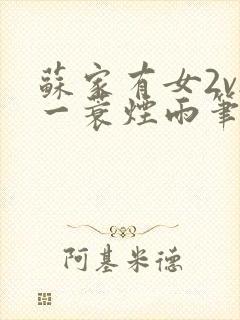 蘇家有女2v
一蓑煙雨筆
阿基米德